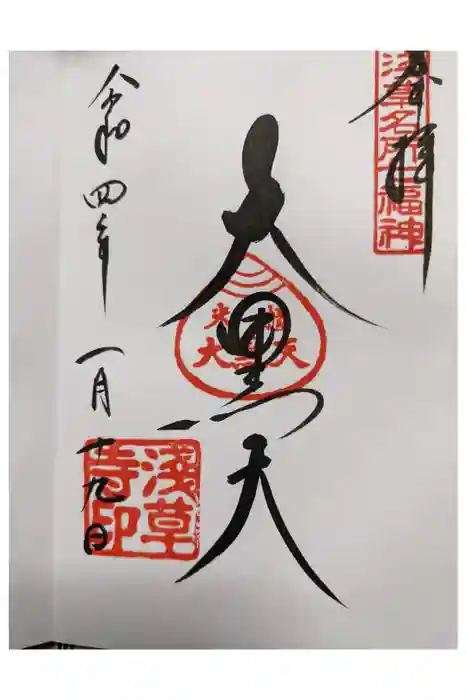 奉拝
浅草名所七福神
大黒天
米櫃
大黒天
令和四年
一月十九日
浅草
寺印